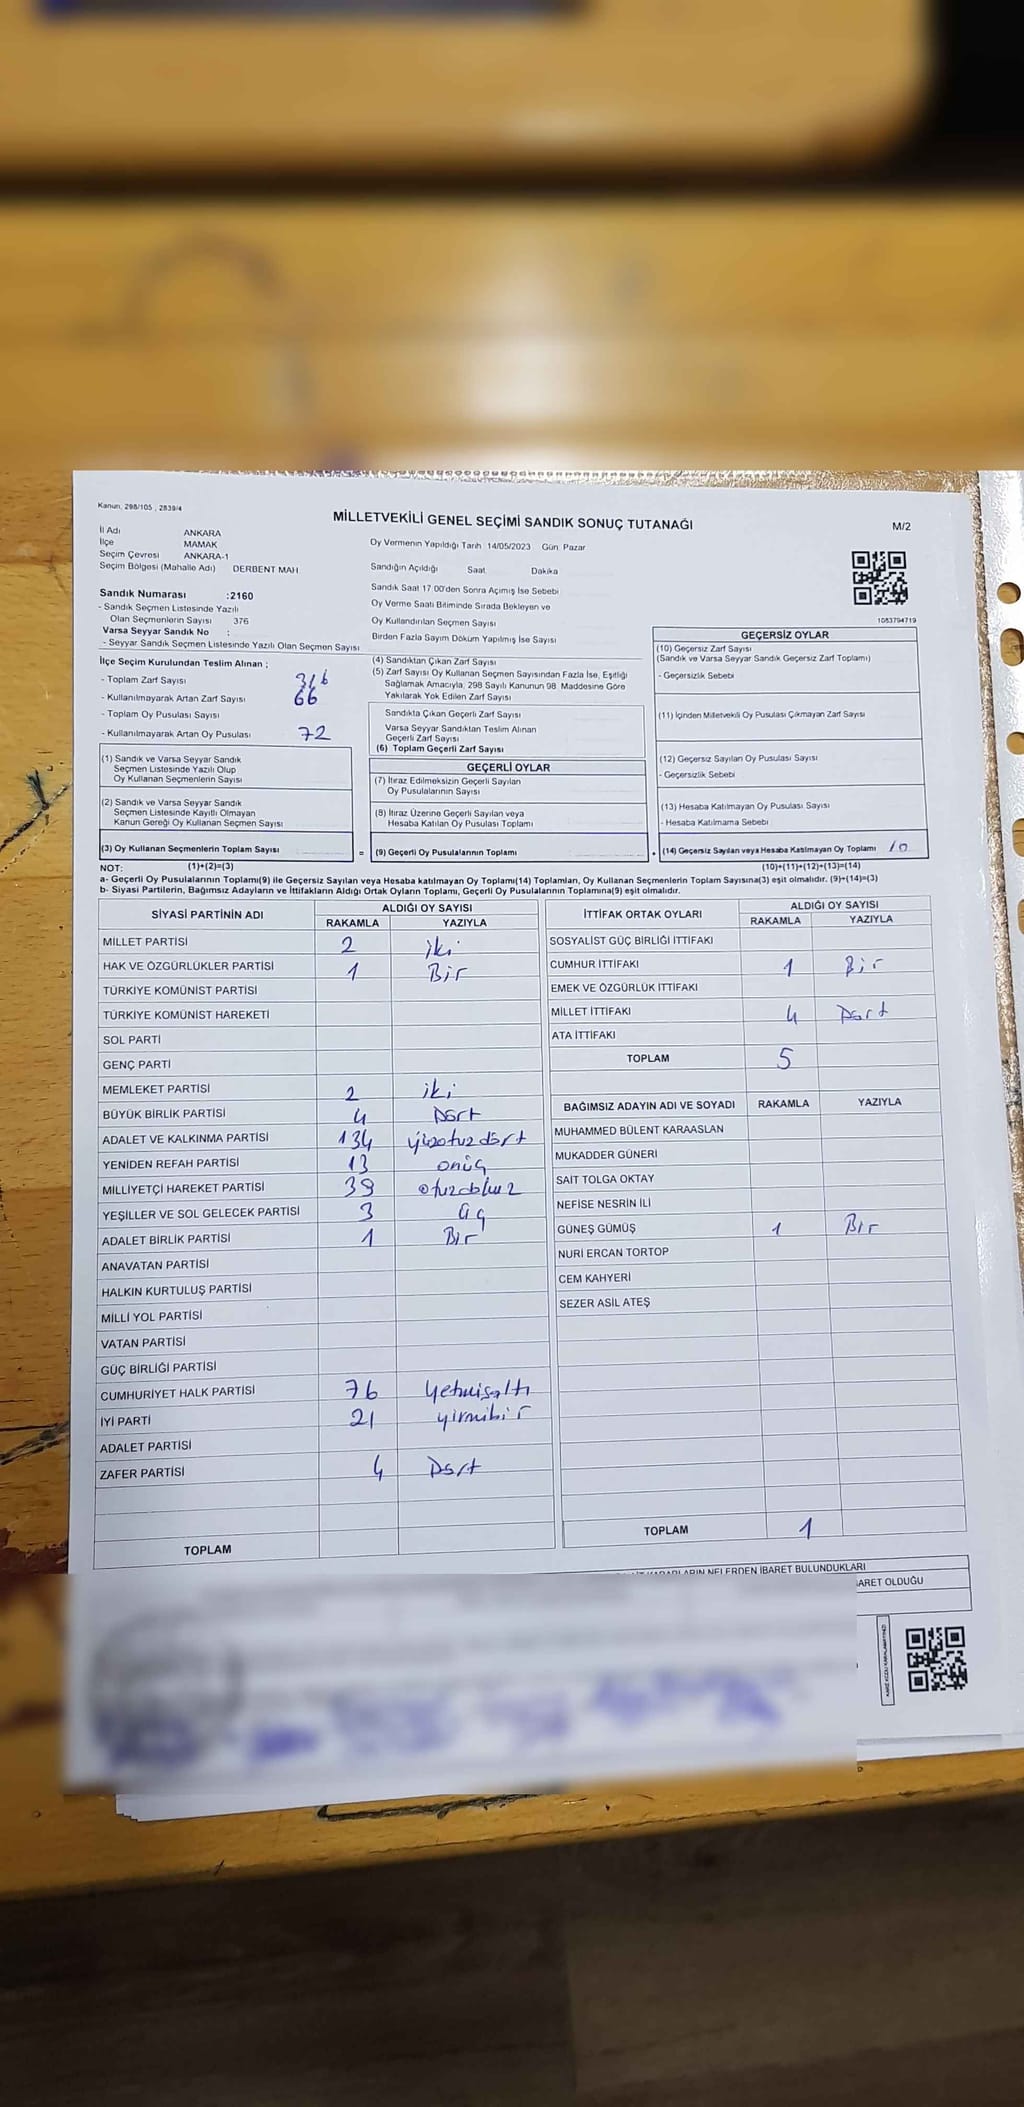 Kanun, 298/105 , 2839/4
MİLLETVEKİLİ GENEL SEÇİMİ SANDIK SONUÇ TUTANAĞI
M/2
İl Adı ANKARA
İlçe MAMAK
Seçim Çevresi ANKARA-1
Seçim Bölgesi (Mahalle Adı) DERBENT MAH
Sandık Numarası :2160
- Sandık Seçmen Listesinde Yazılı
Olan Seçmenlerin Sayısı 376
Varsa Seyyar Sandık No :
- Seyyar Sandık Seçmen Listesinde Yazılı Olan Seçmen Sayısı
Oy Vermenin Yapıldığı Tarih 14/05/2023 Gün Pazar
Sandığın Açıldığı Saat Dakika
Sandık Saat 17 00'den Sonra Açımış İse Sebebi
Oy Verme Saati Bitiminde Sırada Bekleyen ve
Oy Kullandırılan Seçmen Sayısı
Birden Fazla Sayım Döküm Yapılmış İse Sayısı
1083794719
İlçe Seçim Kurulundan Teslim Alınan ;
- Toplam Zarf Sayısı 316
- Kullanılmayarak Artan Zarf Sayısı 66
- Toplam Oy Pusulası Sayısı
- Kullanılmayarak Artan Oy Pusulası 72
(1) Sandık ve Varsa Seyyar Sandık
Seçmen Listesinde Yazılı Olup
Oy Kullanan Seçmenlerin Sayısı
(2) Sandık ve Varsa Seyyar Sandık
Seçmen Listesinde Kayıtlı Olmayan
Kanun Gereği Oy Kullanan Seçmen Sayısı
(3) Oy Kullanan Seçmenlerin Toplam Sayısı
=
(4) Sandıktan Çıkan Zarf Sayısı
(5) Zarf Sayısı Oy Kullanan Seçmen Sayısından Fazla İse, Eşitliği
Sağlamak Amacıyla, 298 Sayılı Kanunun 98. Maddesine Göre
Yakılarak Yok Edilen Zarf Sayısı
Sandıkta Çıkan Geçerli Zarf Sayısı
Varsa Seyyar Sandıktan Teslim Alınan
Geçerli Zarf Sayısı
(6) Toplam Geçerli Zarf Sayısı
GEÇERLİ OYLAR
(7) İtiraz Edilmeksizin Geçerli Sayılan
Oy Pusulalarının Sayısı
(8) İtiraz Üzerine Geçerli Sayılan veya
Hesaba Katılan Oy Pusulası Toplamı
(9) Geçerli Oy Pusulalarının Toplamı
+
GEÇERSİZ OYLAR
(10) Geçersiz Zarf Sayısı
(Sandık ve Varsa Seyyar Sandık Geçersiz Zarf Toplamı)
- Geçersizlik Sebebi
(11) İçinden Milletvekili Oy Pusulası Çıkmayan Zarf Sayısı
(12) Geçersiz Sayılan Oy Pusulası Sayısı
- Geçersizlik Sebebi
(13) Hesaba Katılmayan Oy Pusulası Sayısı
- Hesaba Katılmama Sebebi
(14) Geçersiz Sayılan veya Hesaba Katılmayan Oy Toplamı 10
NOT: (1)+(2)=(3) (10)+(11)+(12)+(13)=(14)
a- Geçerli Oy Pusulalarının Toplamı(9) ile Geçersiz Sayılan veya Hesaba katılmayan Oy Toplamı(14) Toplamları, Oy Kullanan Seçmenlerin Toplam Sayısına(3) eşit olmalıdır. (9)+(14)=(3)
b- Siyasi Partilerin, Bağımsız Adayların ve İttifakların Aldığı Ortak Oyların Toplamı, Geçerli Oy Pusulalarının Toplamına(9) eşit olmalıdır.
SİYASİ PARTİNİN ADI ALDIĞI OY SAYISI
RAKAMLA YAZIYLA
MİLLET PARTİSİ 2 iki
HAK VE ÖZGÜRLÜKLER PARTİSİ 1 Bir
TÜRKİYE KOMÜNİST PARTİSİ
TÜRKİYE KOMÜNİST HAREKETİ
SOL PARTİ
GENÇ PARTİ
MEMLEKET PARTİSİ 2 iki
BÜYÜK BİRLİK PARTİSİ 4 Dört
ADALET VE KALKINMA PARTİSİ 134 yüzotuzdört
YENİDEN REFAH PARTİSİ 13 onüç
MİLLİYETÇİ HAREKET PARTİSİ 39 otuzdokuz
YEŞİLLER VE SOL GELECEK PARTİSİ 3 üç
ADALET BİRLİK PARTİSİ 1 Bir
ANAVATAN PARTİSİ
HALKIN KURTULUŞ PARTİSİ
MİLLİ YOL PARTİSİ
VATAN PARTİSİ
GÜÇ BİRLİĞİ PARTİSİ
CUMHURİYET HALK PARTİSİ 76 yetmişaltı
İYİ PARTİ 21 yirmibir
ADALET PARTİSİ
ZAFER PARTİSİ 4 Dört
TOPLAM
İTTİFAK ORTAK OYLARI ALDIĞI OY SAYISI
RAKAMLA YAZIYLA
SOSYALİST GÜÇ BİRLİĞİ İTTİFAKI
CUMHUR İTTİFAKI 1 Bir
EMEK VE ÖZGÜRLÜK İTTİFAKI
MİLLET İTTİFAKI 4 Dört
ATA İTTİFAKI
TOPLAM 5
BAĞIMSIZ ADAYIN ADI VE SOYADI RAKAMLA YAZIYLA
MUHAMMED BÜLENT KARAASLAN
MUKADDER GÜNERİ
SAİT TOLGA OKTAY
NEFİSE NESRİN İLİ
GÜNEŞ GÜMÜŞ 1 Bir
NURİ ERCAN TORTOP
CEM KAHYERİ
SEZER ASİL ATEŞ
TOPLAM 1
NELERDEN İBARET BULUNDUKLARI
OLDUĞU